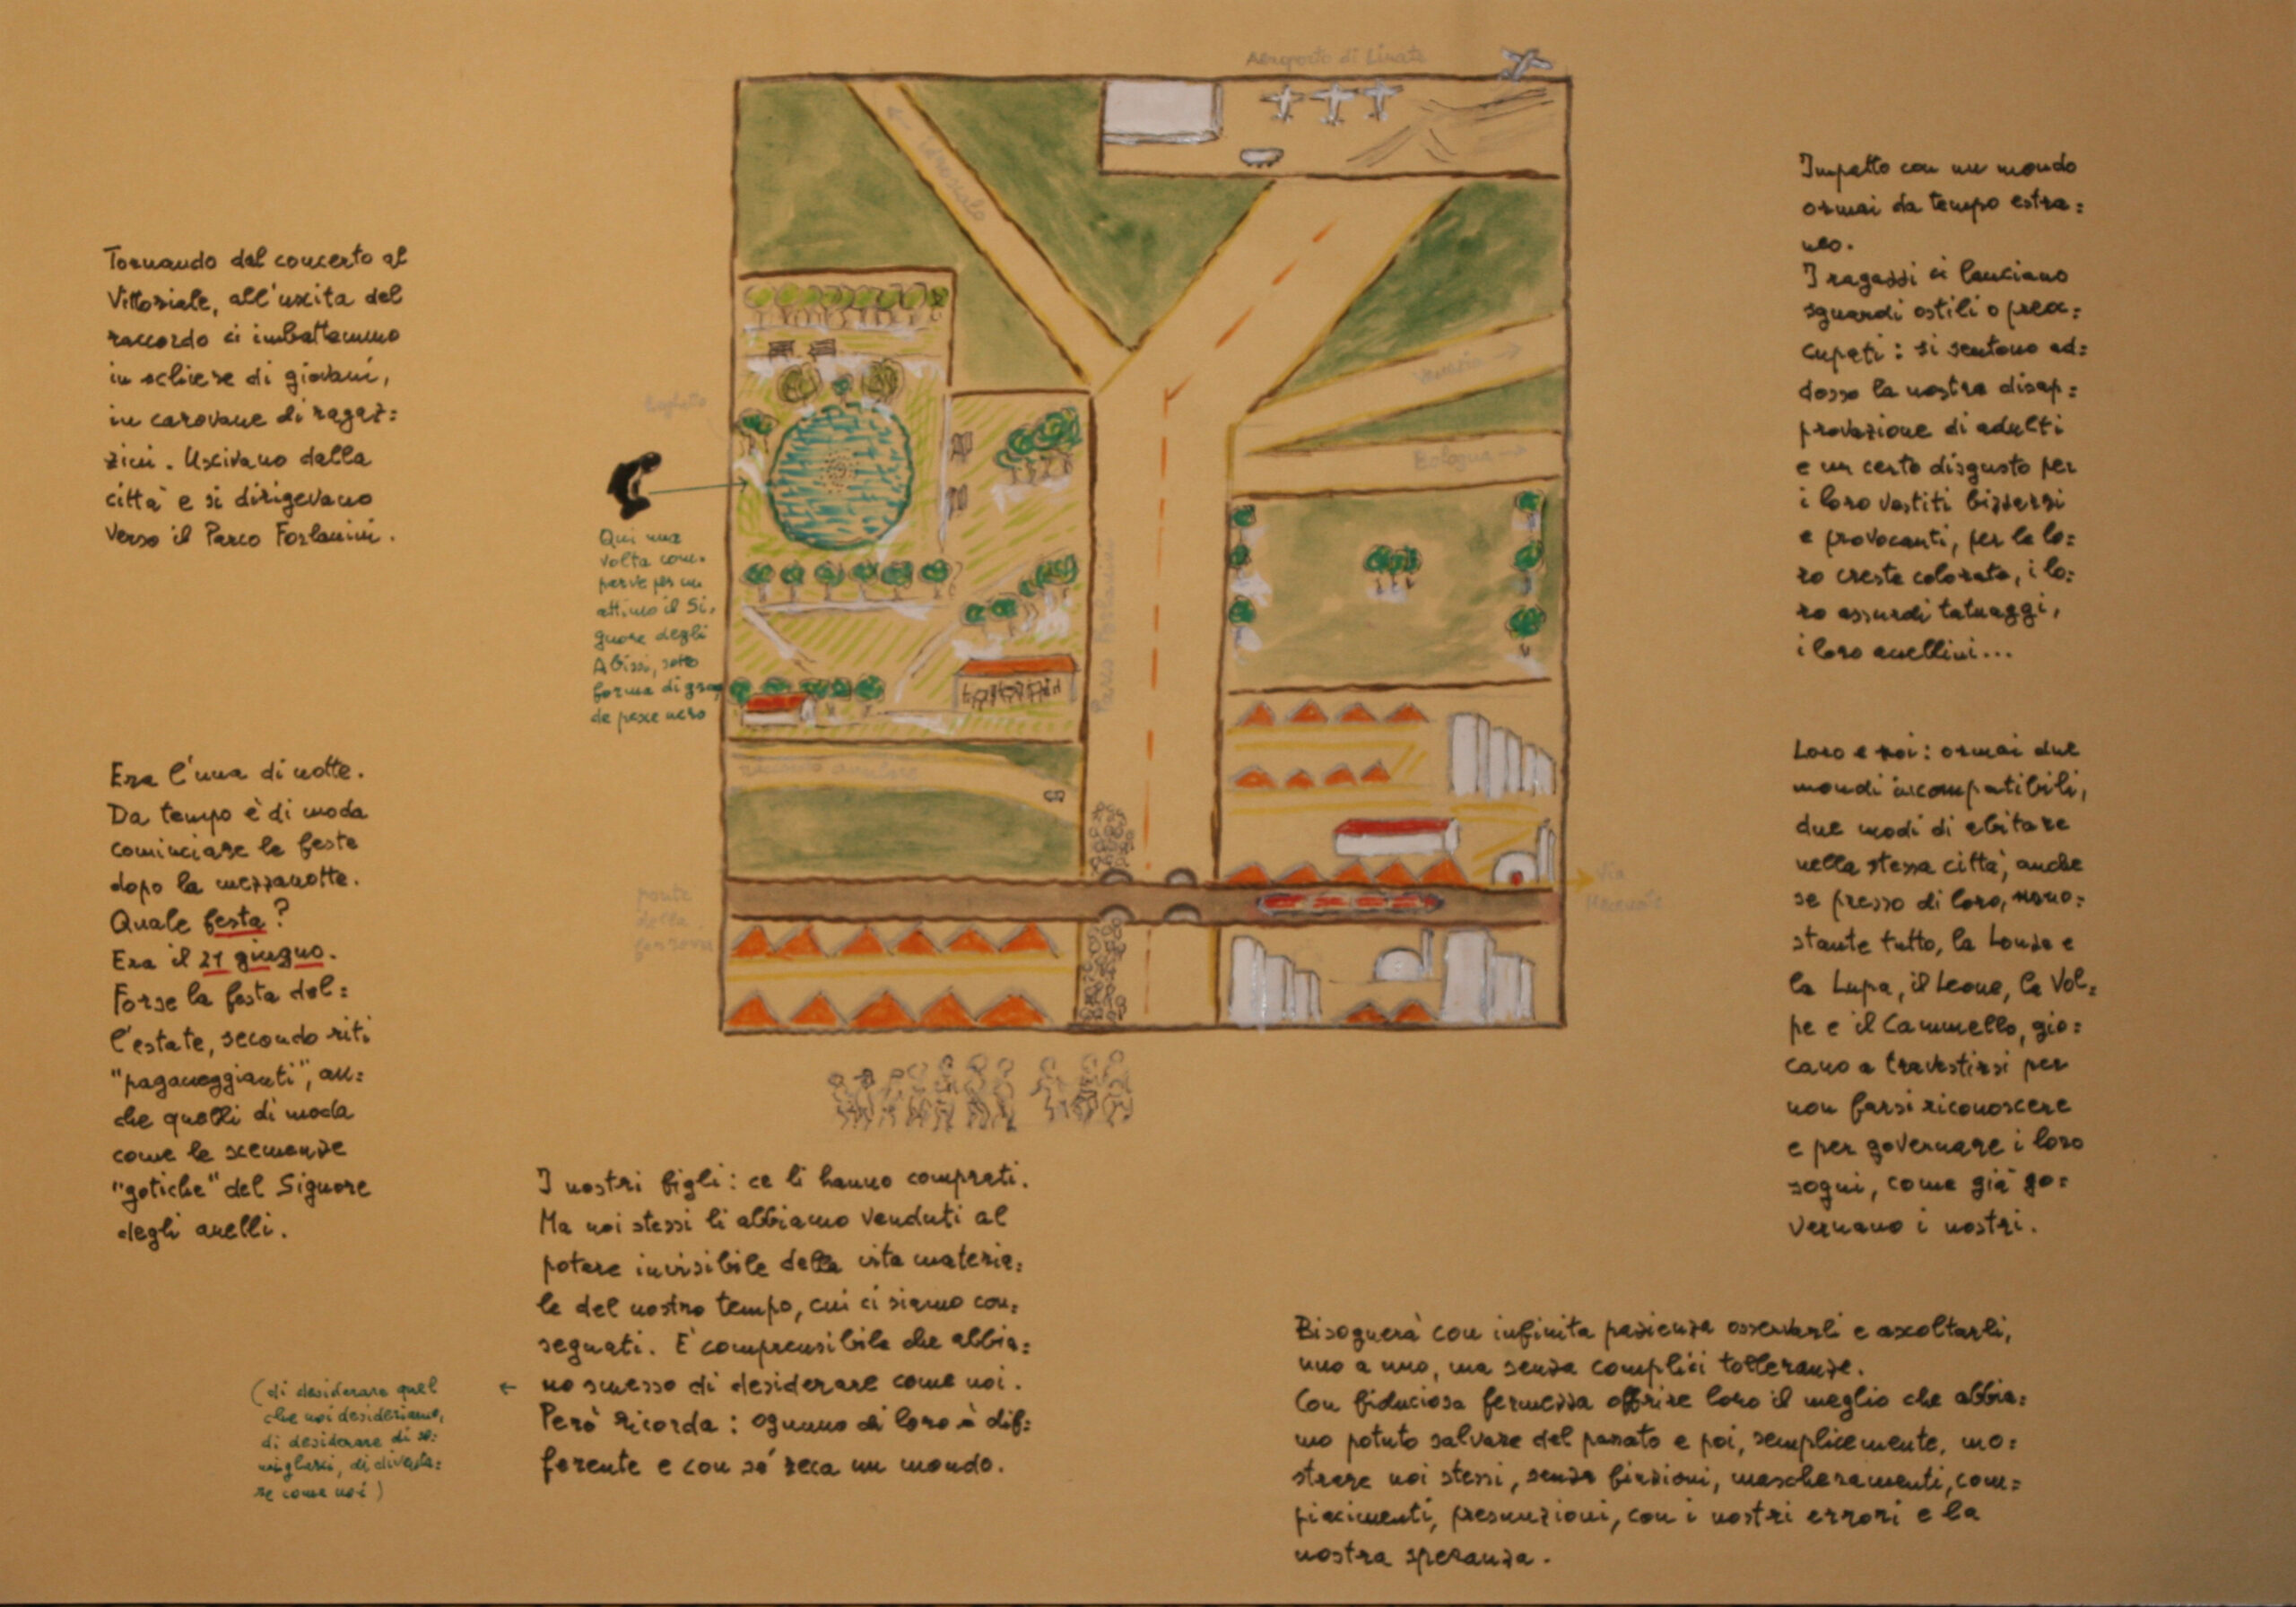 Tornando dal concerto al
Vittoriale, all'uscita del
raccordo ci imbattemmo
in schiere di giovani,
in carovane di ragaz=
zini. Uscivano dalla
città e si dirigevano
verso il Parco Forlanini.
Era l'una di notte.
Da tempo è di moda
cominciare le feste
dopo la mezzanotte.
Quale festa?
Era il 21 giugno.
Forse la festa del=
l'estate, secondo riti
"paganeggianti", an=
che quelli di moda
come le scemenze
"gotiche" del Signore
degli anelli.
Aeroporto di Linate
← idroscalo
Venezia →
Bologna →
laghetto
Qui una
volta com=
parve per un
attimo il Si=
gnore degli
Abissi, sotto
forma di gran=
de pesce nero
Parco Forlanini
ponte
della
ferrovia
Via
Mecenate
I nostri figli: ce li hanno comprati.
Ma noi stessi li abbiamo venduti al
potere invisibile della vita materia=
le del nostro tempo, cui ci siamo con=
segnati. E' comprensibile che abbia=
no smesso di desiderare come noi.
Però ricorda: ognuno di loro è dif=
ferente e con sé reca un mondo.
← (di desiderare quel
che noi desideriamo,
di desiderare di so=
migliarci, di diventa=
re come noi)
Impatto con un mondo
ormai da tempo estra=
neo.
I ragazzi ci lanciano
sguardi ostili o preoc=
cupati: si sentono ad=
dosso la nostra disap=
provazione di adulti
e un certo disgusto per
i loro vestiti bizzarri
e provocanti, per le lo=
ro creste colorate, i lo=
ro assurdi tatuaggi,
i loro anellini...
Loro e noi: ormai due
mondi incompatibili,
due modi di abitare
nella stessa città, anche
se presso di loro, nono=
stante tutto, la Lonza e
la Lupa, il Leone, la Vol=
pe e il Cammello, gio=
cano a travestirsi per
non farsi riconoscere
e per governare i loro
sogni, come già go=
vernano i nostri.
Bisognerà con infinita pazienza osservarli e ascoltarli,
uno a uno, ma senza complici tolleranze.
Con fiduciosa fermezza offrire loro il meglio che abbia=
mo potuto salvare del passato e poi, semplicemente, mo=
strare noi stessi, senza finzioni, mascheramenti, com=
piacimenti, presunzioni, con i nostri errori e la
nostra speranza.